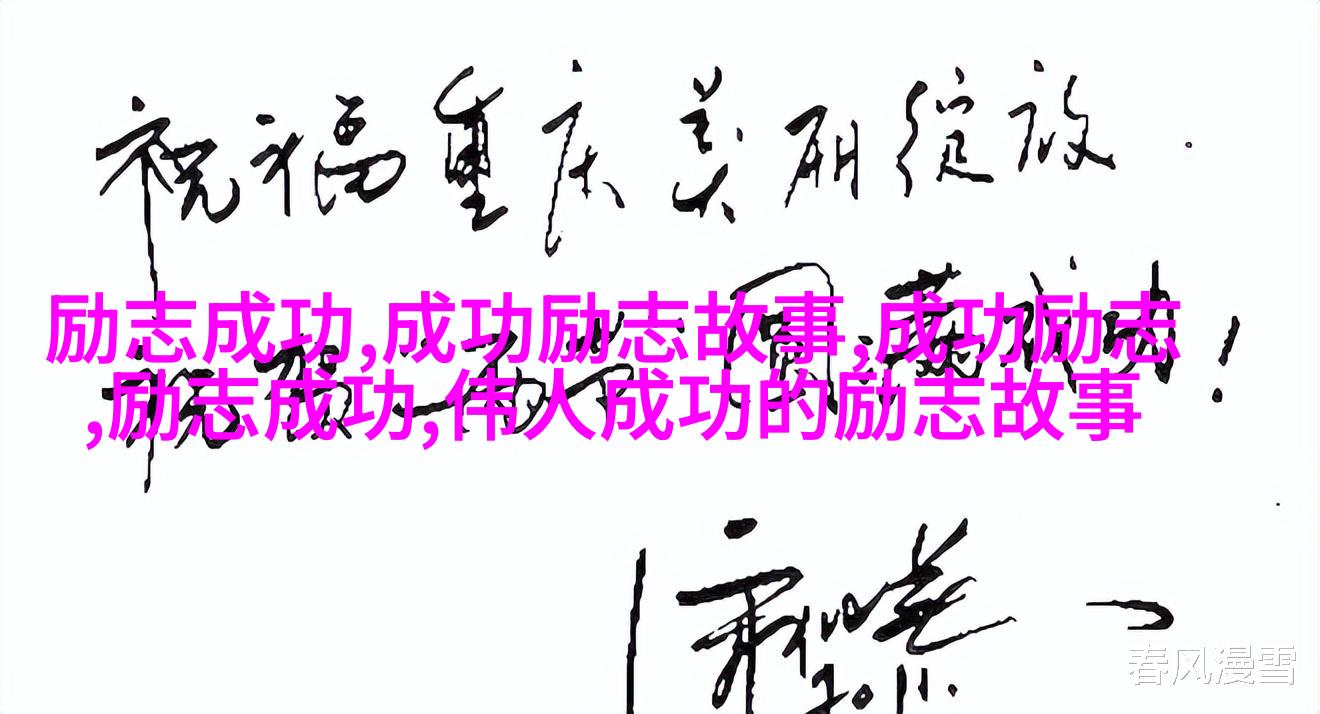 祝福重庆美丽绽放.
励志成功,成功励志故事,成功励志
,励志成功,伟人成功的励志故事
祝福 圆满成功!
2011.
春风漫雪